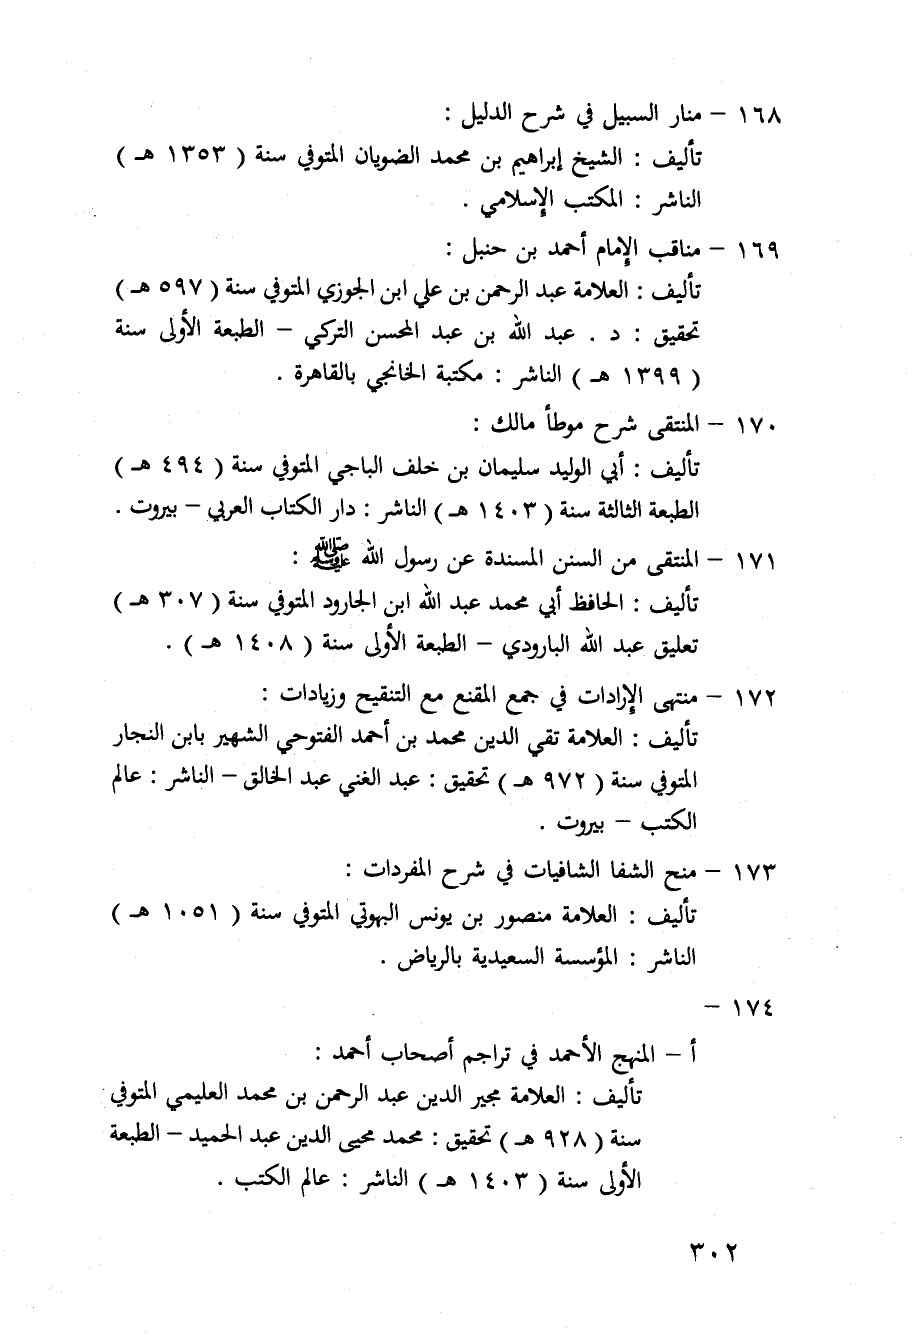 ١٦٨ – منار السبيل في شرح الدليل :
تأليف : الشيخ إبراهيم بن محمد الضويان المتوفي سنة ( ١٣٥٣ هـ )
الناشر : المكتب الإسلامي .
١٦٩ – مناقب الإمام أحمد بن حنبل :
تأليف : العلامة عبد الرحمن بن علي ابن الجوزي المتوفي سنة ( ٥٩٧ هـ )
تحقيق : د . عبد الله بن عبد المحسن التركي – الطبعة الأولى سنة
( ١٣٩٩ هـ ) الناشر : مكتبة الخانجي بالقاهرة .
١٧٠ – المنتقى شرح موطأ مالك :
تأليف : أبي الوليد سليمان بن خلف الباجي المتوفي سنة ( ٤٩٤ هـ )
الطبعة الثالثة سنة ( ١٤٠٣ هـ ) الناشر : دار الكتاب العربي – بيروت .
١٧١ – المنتقى من السنن المسندة عن رسول الله ﷺ :
تأليف : الحافظ أبي محمد عبد الله ابن الجارود المتوفي سنة ( ٣٠٧ هـ )
تعليق عبد الله البارودي – الطبعة الأولى سنة ( ١٤٠٨ هـ ) .
١٧٢ – منتهى الإرادات في جمع المقنع مع التنقيح وزيادات :
تأليف : العلامة تقي الدين محمد بن أحمد الفتوحي الشهير بابن النجار
المتوفي سنة ( ٩٧٢ هـ ) تحقيق : عبد الغني عبد الخالق – الناشر : عالم
الكتب – بيروت .
١٧٣ – منح الشفا الشافيات في شرح المفردات :
تأليف : العلامة منصور بن يونس البهوتي المتوفي سنة ( ١٠٥١ هـ )
الناشر : المؤسسة السعيدية بالرياض .
١٧٤ –
أ – المنهج الأحمد في تراجم أصحاب أحمد :
تأليف : العلامة مجير الدين عبد الرحمن بن محمد العليمي المتوفي
سنة ( ٩٢٨ هـ ) تحقيق : محمد محيى الدين عبد الحميد – الطبعة
الأولى سنة ( ١٤٠٣ هـ ) الناشر : عالم الكتب .
٣٠٢